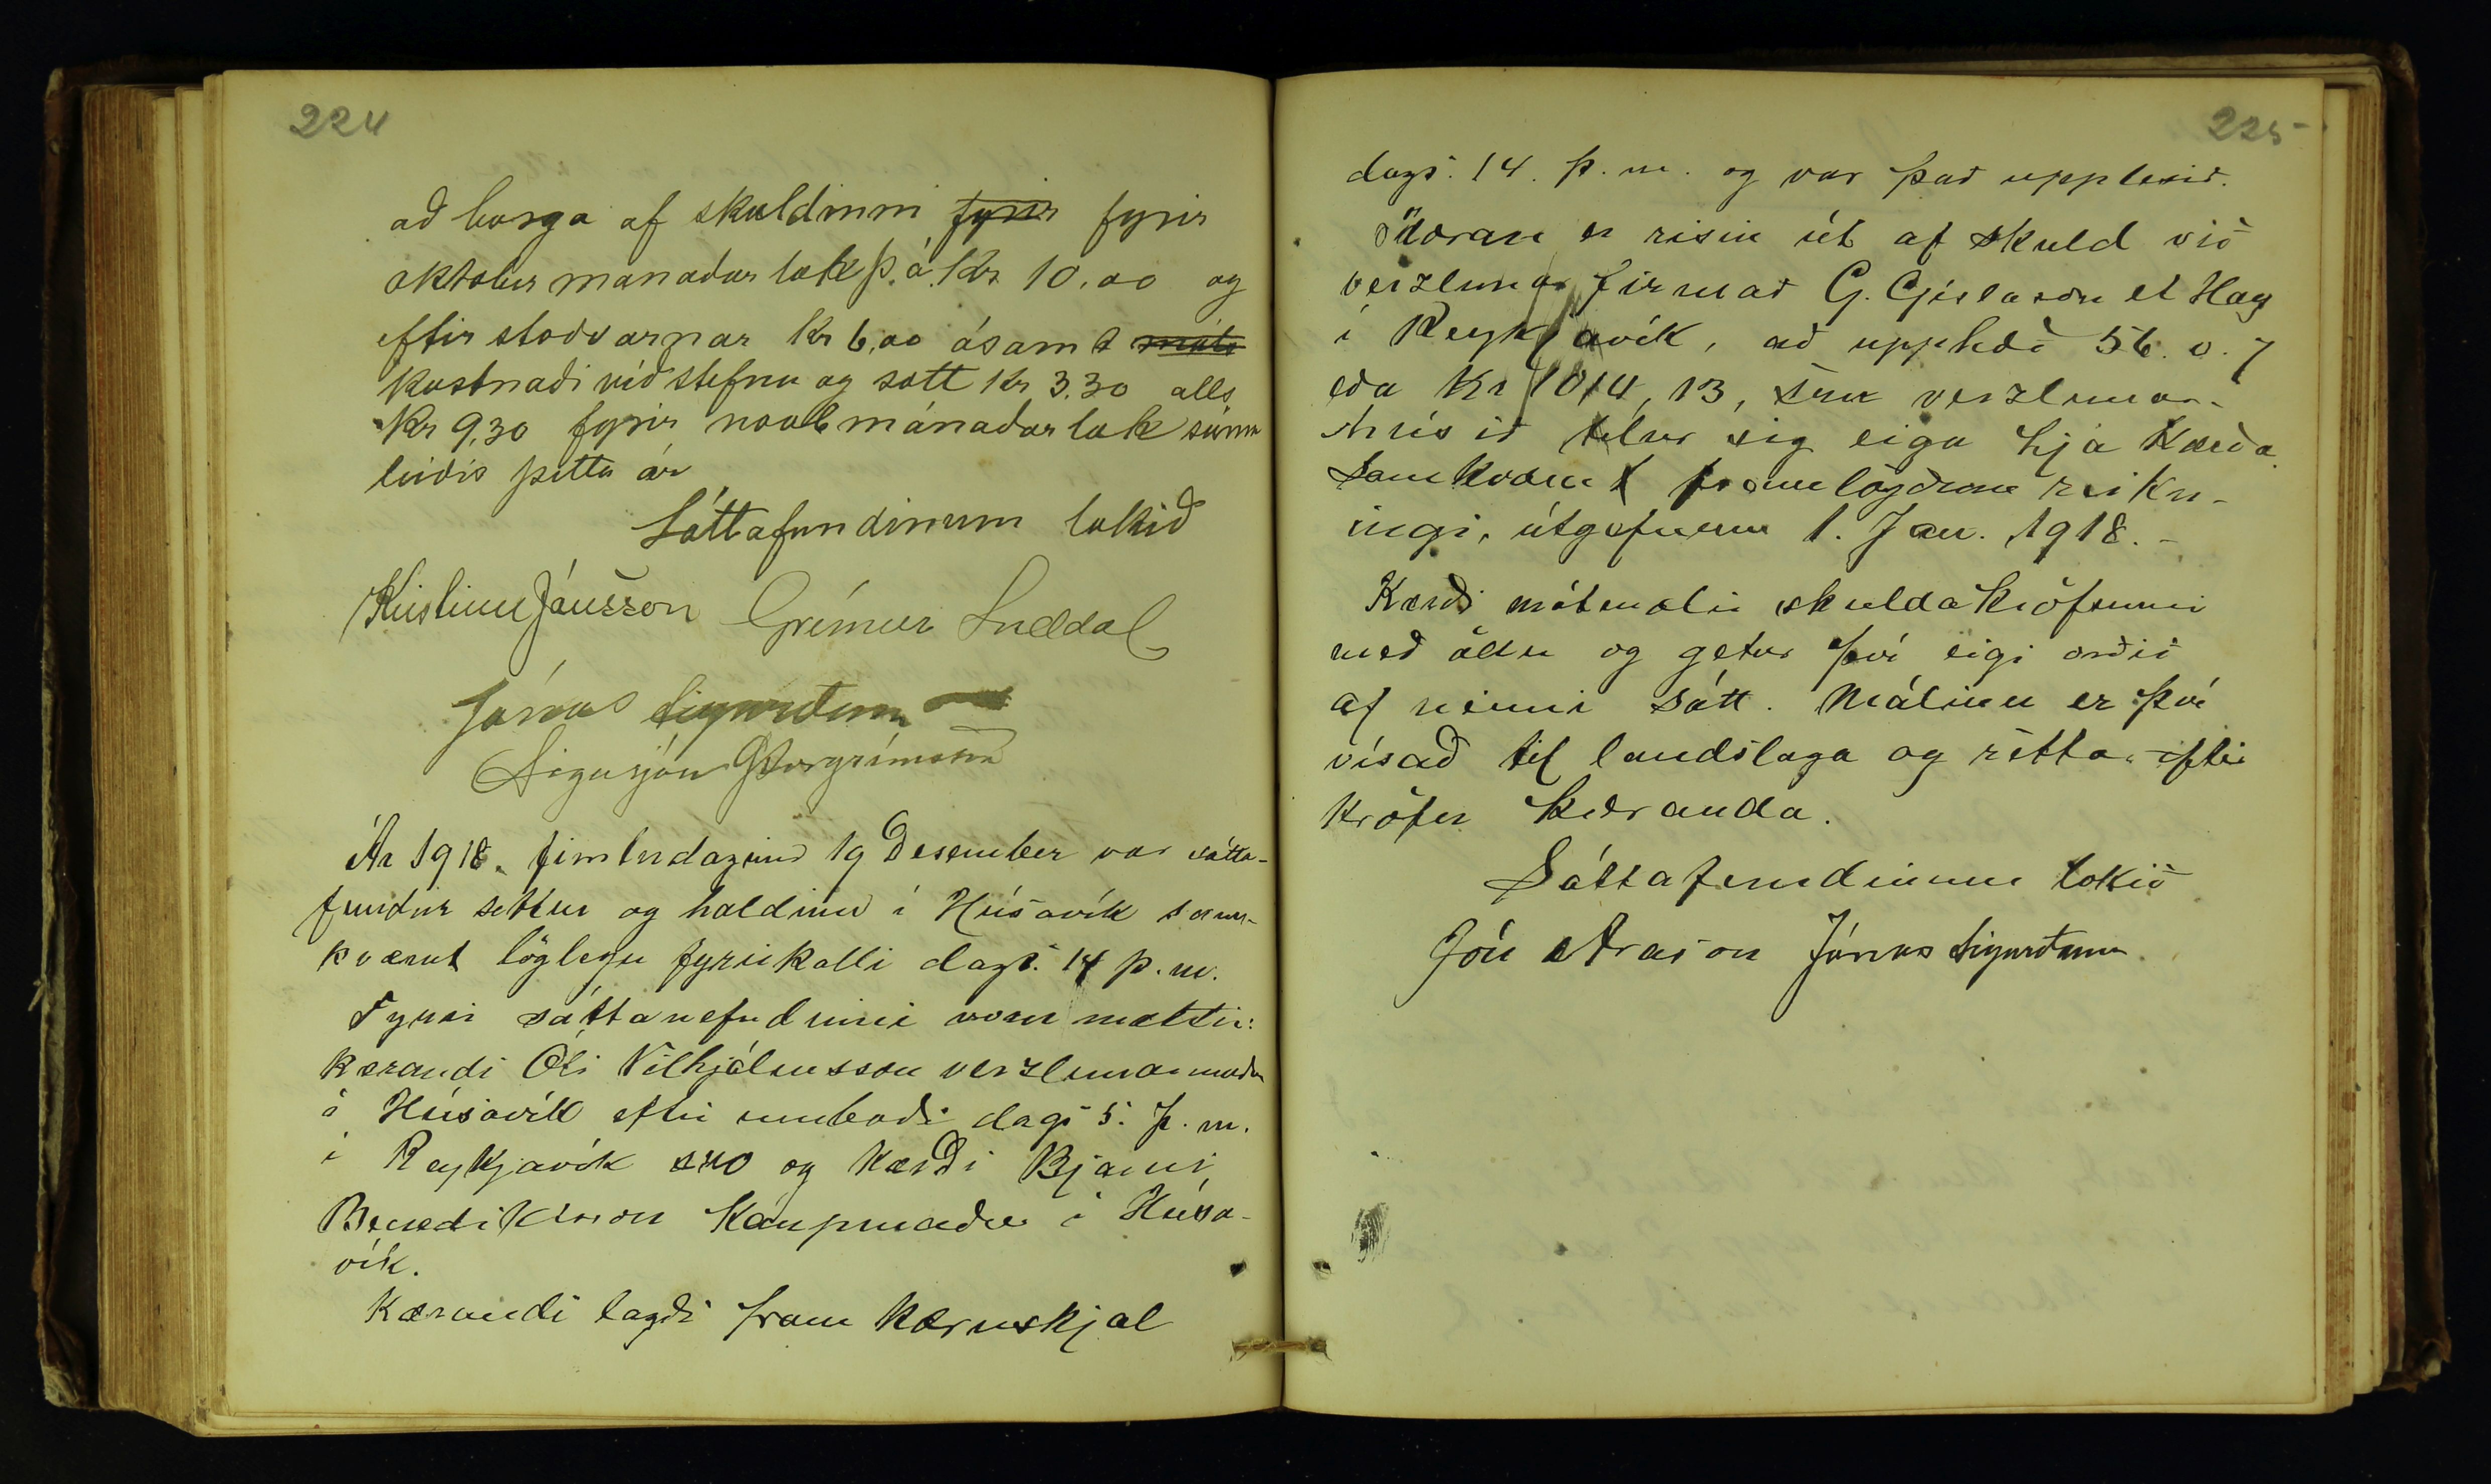 224
að borga af skuldinni fyrir fyrir
oktober manaðar lok þ. á. Kr 10.00 og
eftirstoðvarnar Kr 6,00 ásamt
kostnaði við stefnu og satt Kr 3.30 alls
Kr 9,30 fyrir novb mánaðar lok sömu
leiðis þetta ár
Sáttafundinum lokið
Kristinn Jónsson Grímur
Jónas Sigurðsson
Sigurjón Þorgrímsson
Ár 1918. fimtudaginn 19 Desember var sátta-
fundur settur og haldinn í Húsavík sam-
kvæmt löglegu fyrirkalli dags. 14 þ. m.
Fyrir sáttanefndinni voru mættir:
kærandi Óli Vilhjálmsson verzlunarmaður
á Húsavík eftir umboði dags 5. þ. m.
í Reykjavík svo og kærði Bjarni
Benediktsson kaupmaður í Húsa-
vík.
Kærandi lagði fram kæruskjal
225
dags. 14. þ. m. og var það upplesið.
Kæran er risin út af skuld við
verzlunar firmað G. Gíslason et Hay
í Reykjavík, að upphæð 56. 0. 7
eða Kr 1014,13, sem verzlunar-
húsið telur sig eiga hjá kærða
samkvæmt framlögðum reikn-
ingi, útgefnum 1. Jan. 1918. -
Kærði mótmælir skuldakröfunni
með öllu og getur því eigi orðið
af neinni sátt. Málinu er því
vísað til landslaga og réttar eftir
kröfu kæranda.
Sáttafundinum lokið
Jón Arason Jónas Sigurðsson